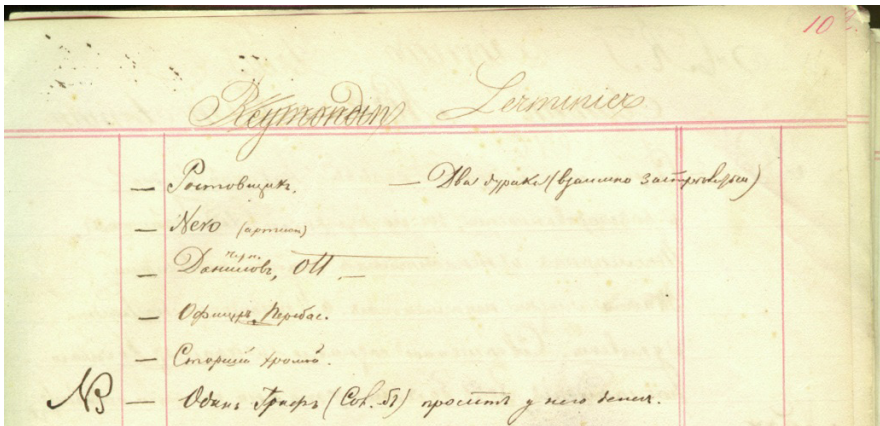 102.
Reymondin Lerminier
— Ростовщикъ. — Два дурака (взаимно застрѣлены)
— Nero (артистъ)
— Даниловъ, Ott —
— Офицеръ Пербас.
— Старший хромой.
NB — Одинъ Графъ (Сок. бъ) проситъ у него денег.